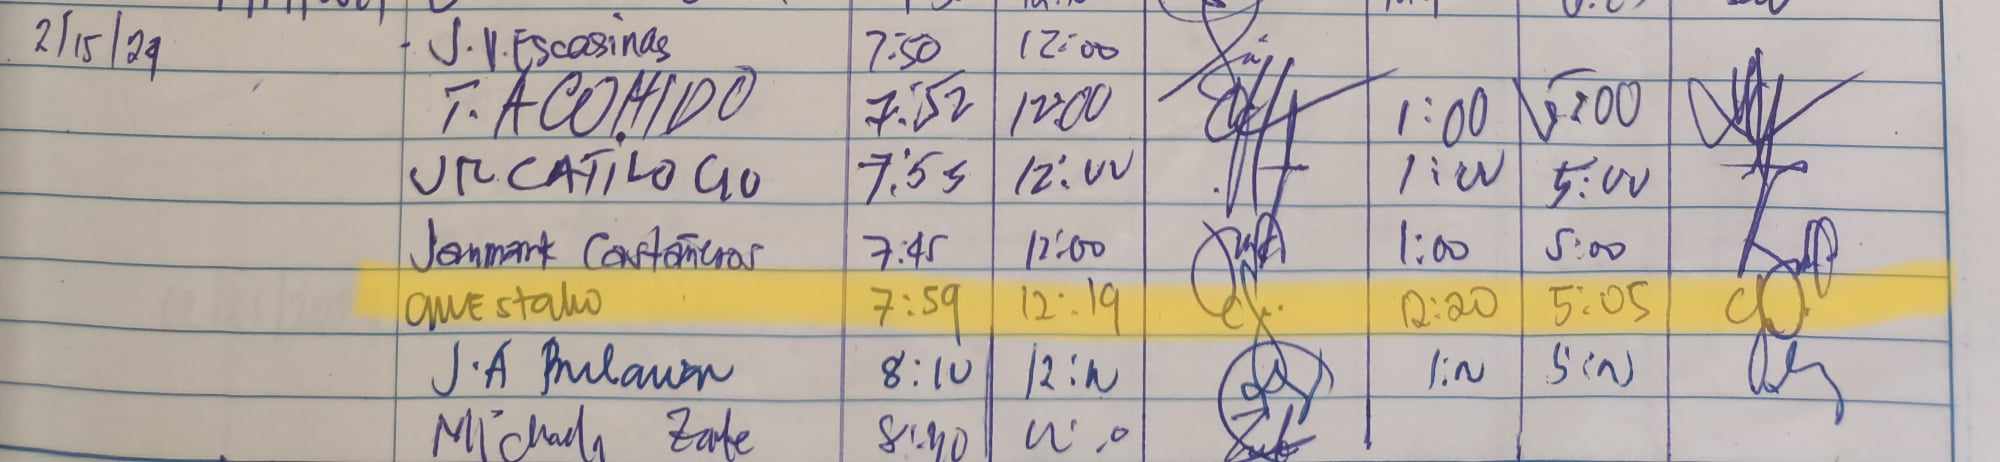 2/15/24 J.V.Escasinas 7:50 12:00
T. ACOMIDO 7:52 12:00 1:00 5:00
JR. CATILOGO 7:55 12:00 1:00 5:00
Jonmark Castañeros 7:45 12:00 1:00 5:00
7:59 12:19 12:20 5:05
J.A Bulawan 8:10 12:N 1:N 5:N
8:40